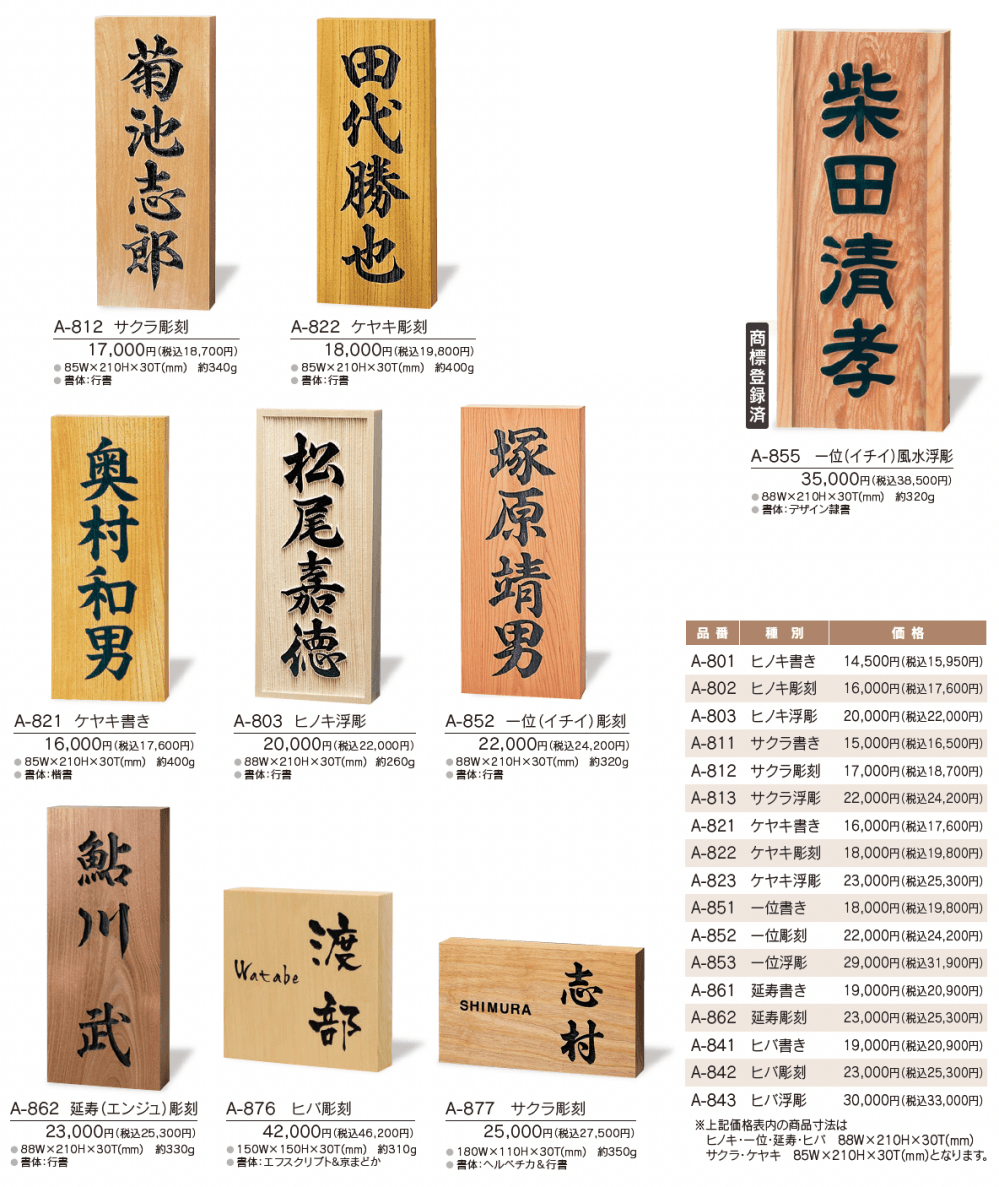 菊池志郎
A-812 サクラ彫刻
17,000円(税込18,700円)
●85W×210H×30T(mm) 約340g
●書体:行書
田代勝也
A-822 ケヤキ彫刻
18,000円(税込19,800円)
●85W×210H×30T(mm) 約400g
●書体:行書
柴田清孝
商標登録済
A-855 一位(イチイ)風水浮彫
35,000円(税込38,500円)
●88W×210H×30T(mm) 約320g
●書体:デザイン隷書
奥村和男
A-821 ケヤキ書き
16,000円(税込17,600円)
●85W×210H×30T(mm) 約400g
●書体:楷書
松尾嘉徳
A-803 ヒノキ浮彫
20,000円(税込22,000円)
●88W×210H×30T(mm) 約260g
●書体:行書
塚原靖男
A-852 一位(イチイ)彫刻
22,000円(税込24,200円)
●88W×210H×30T(mm) 約320g
●書体:行書
鮎川武
A-862 延寿(エンジュ)彫刻
23,000円(税込25,300円)
●88W×210H×30T(mm) 約330g
●書体:行書
渡部
Watabe
A-876 ヒバ彫刻
42,000円(税込46,200円)
●150W×150H×30T(mm) 約310g
●書体:エフスクリプト&京まどか
志村
SHIMURA
A-877 サクラ彫刻
25,000円(税込27,500円)
●180W×110H×30T(mm) 約350g
●書体:ヘルベチカ&行書
品番 種別 価格
A-801 ヒノキ書き 14,500円(税込15,950円)
A-802 ヒノキ彫刻 16,000円(税込17,600円)
A-803 ヒノキ浮彫 20,000円(税込22,000円)
A-811 サクラ書き 15,000円(税込16,500円)
A-812 サクラ彫刻 17,000円(税込18,700円)
A-813 サクラ浮彫 22,000円(税込24,200円)
A-821 ケヤキ書き 16,000円(税込17,600円)
A-822 ケヤキ彫刻 18,000円(税込19,800円)
A-823 ケヤキ浮彫 23,000円(税込25,300円)
A-851 一位書き 18,000円(税込19,800円)
A-852 一位彫刻 22,000円(税込24,200円)
A-853 一位浮彫 29,000円(税込31,900円)
A-861 延寿書き 19,000円(税込20,900円)
A-862 延寿彫刻 23,000円(税込25,300円)
A-841 ヒバ書き 19,000円(税込20,900円)
A-842 ヒバ彫刻 23,000円(税込25,300円)
A-843 ヒバ浮彫 30,000円(税込33,000円)
※上記価格表内の商品寸法は
ヒノキ・一位・延寿・ヒバ 88W×210H×30T(mm)
サクラ・ケヤキ 85W×210H×30T(mm)となります。